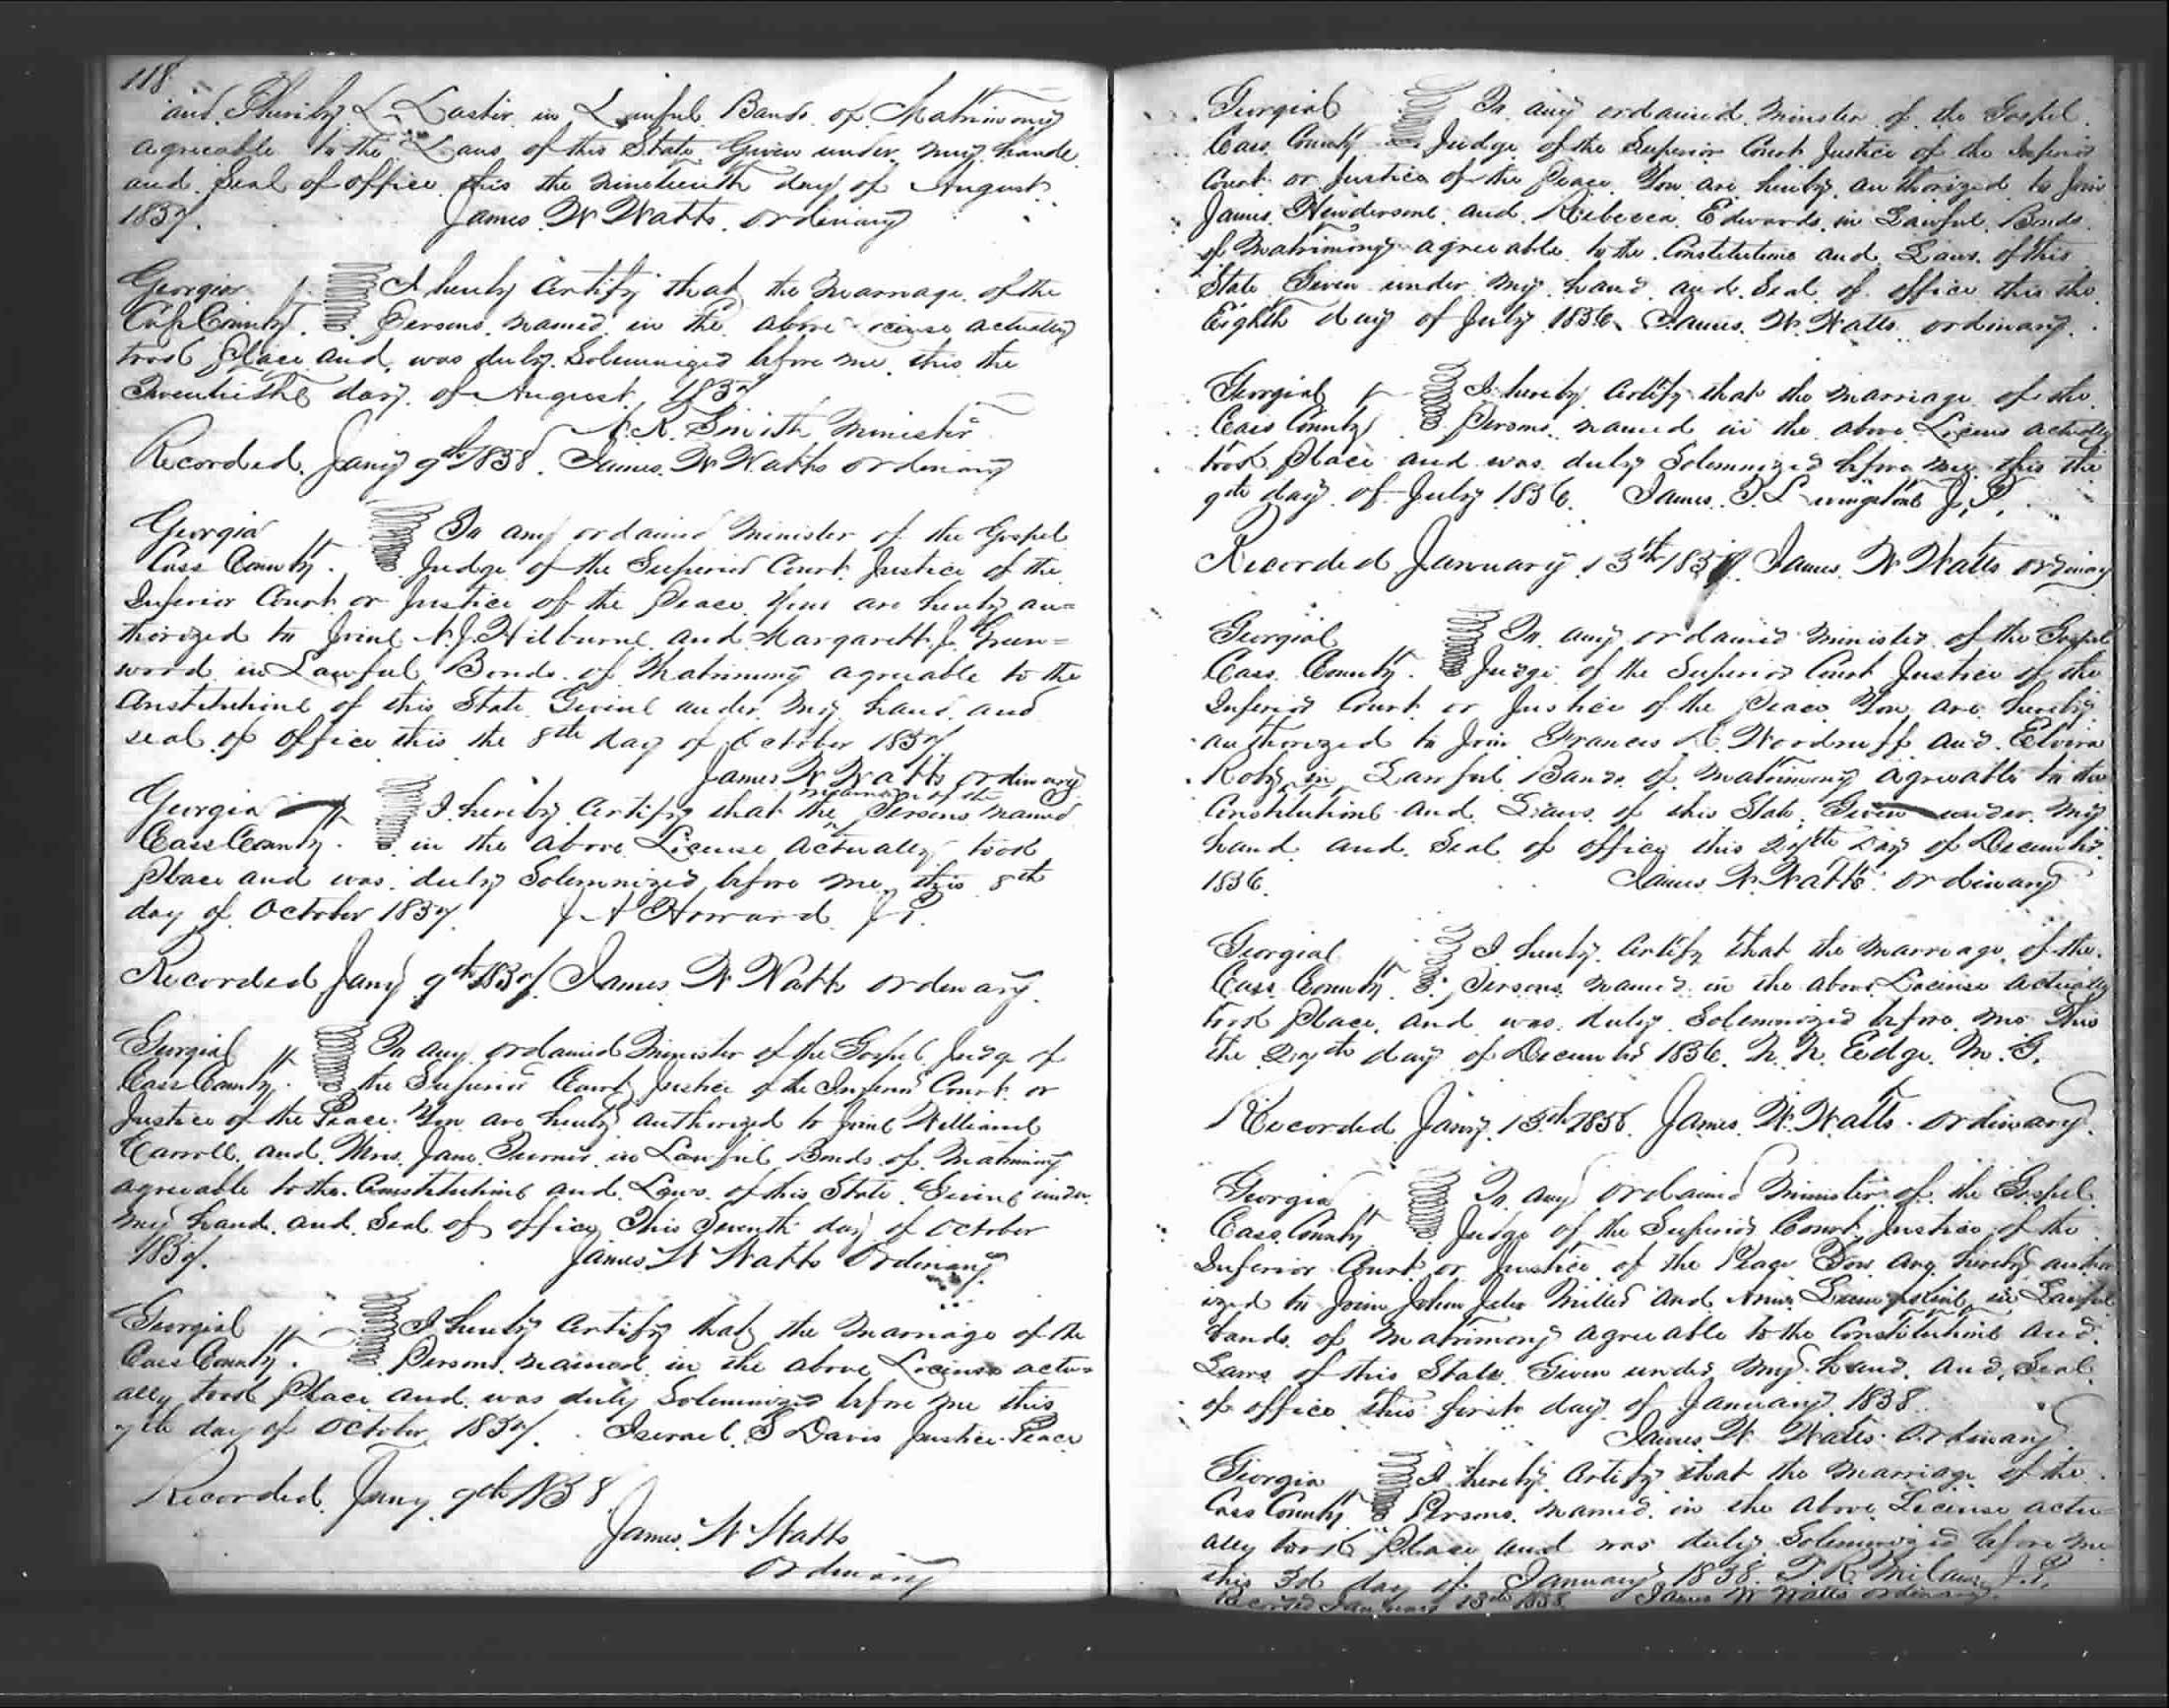 118
and L Lastir in Lawful Bands of Matrimony
agreeable to the Laws of this State Given under my hande
and Seal of office this the nineteenth day of August
1837. James W Watts ordinary
Georgia I hereby certify that the marriage of the
Cass County. Persons named in the above actually
took Place and was duly Solemnized before me this the
Twentieth day of August 1837
Smith Minister
Recorded Jany 9th 1838. James W Watts ordinary
Georgia To any ordained Minister of the Gospel
Cass County. Judge of the Superior Court Justice of the
Inferior Court or Justice of the Peace You are hereby au=
thorized to Joine N. J. Hilburne and Margarett J. Green=
wood in Lawful Bonds of Matrimony agreeable to the
Constitutione of this State Givine under my hand and
seal of office this the 8th day of October 1837.
James W Watts ordinary
Georgia I hereby certify that the marriage of the Persons named
Cass County. in the above License actually took
Place and was duly Solemnized before me this 8th
day of October 1837. J A Howard J P.
Recorded Jany 9th 1837. James W Watts ordinary.
Georgia To any ordained Minister of the Gospel Judge of
Cass County. the Superior Court Justice of the Inferior Court or
Justice of the Peace. You are hereby authorized to Joine William
Carroll and Mrs. Jane Turner in Lawful Bonds of Matrimony
agreeable to the Constitutione and Laws of this State. Givine under
my hand and Seal of office This Seventh day of October
1837. James W Watts Ordinary
Georgia I hereby certify that the marriage of the
Cass County. Persons named in the above License actu=
ally took Place and was duly Solemnized before me this
7th day of October 1837. Iserael S Davis Justice Peace
Recorded Jany 9th 1838
James W Watts
ordinary
Georgia To any ordained Minister of the Gospel
Cass County Judge of the Superior Court Justice of the Inferior
Court or Justice of the Peace You are hereby authorized to Join
James Hendersone and Rebecca Edwards in Lawful Bonds
of Matrimony agreeable to the Constitutione and Laws of this
State Given under my hand and Seal of office this the
Eighth day of July 1836. James W. Watts ordinary.
Georgia I hereby certify that the marriage of the
Cass County Persons named in the above Licens actually
took Place and was duly Solemnized before me this the
9th day of July 1836. James T. Livingstone J. P.
Recorded January 13th 1837 James W Watts ordinary
Georgia To any ordained Minister of the Gospel
Cass County. Judge of the Superior Court Justice of the
Inferior Court or Justice of the Peace You are hereby
authorized to Join Francis Woodruff and Elvira
Roby in Lawful Bands of Matrimony agreeable to the
Constitutione and Laws of this State Given under my
hand and Seal of office this 27th Day of December
1836. James W. Watts ordinary
Georgia I hereby certify that the marriage of the
Cass County Persons named in the above License actually
took Place and was duly Solemnized before me This
the 27th day of December 1836. N. N. Edge. M. G.
Recorded Jany. 13th 1838 James W. Watts. ordinary.
Georgia To any ordained Minister of the Gospel
Cass County Judge of the Superior Court Justice of the
Inferior Court or Justice of the Peace You are hereby autho
ized to Join John Miller and in Lawful
bands of Matrimony agreeable to the Constitutione and
Laws of this State Given under my hand and Seal
of office this first day of January 1838.
James W Watts ordinary
Georgia I hereby certify that the marriage of the
Cass County Persons named in the above License actu
ally took Place and was duly Solemnized before me
this 3d day of January 1838. T R J.P.
Recorded January 13th 1838 James W Watts ordinary.